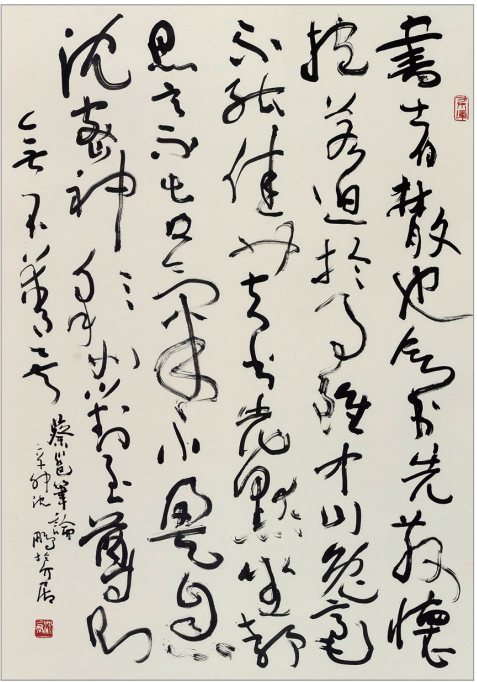 書者散也欲書先散懷
抱若迫於事雖中山兔毫
不能佳也夫書先默坐靜
思言不出口氣不盈息
沈密神彩如對至尊則
無不善矣
蔡邕筆論
辛卯沈鵬於介居